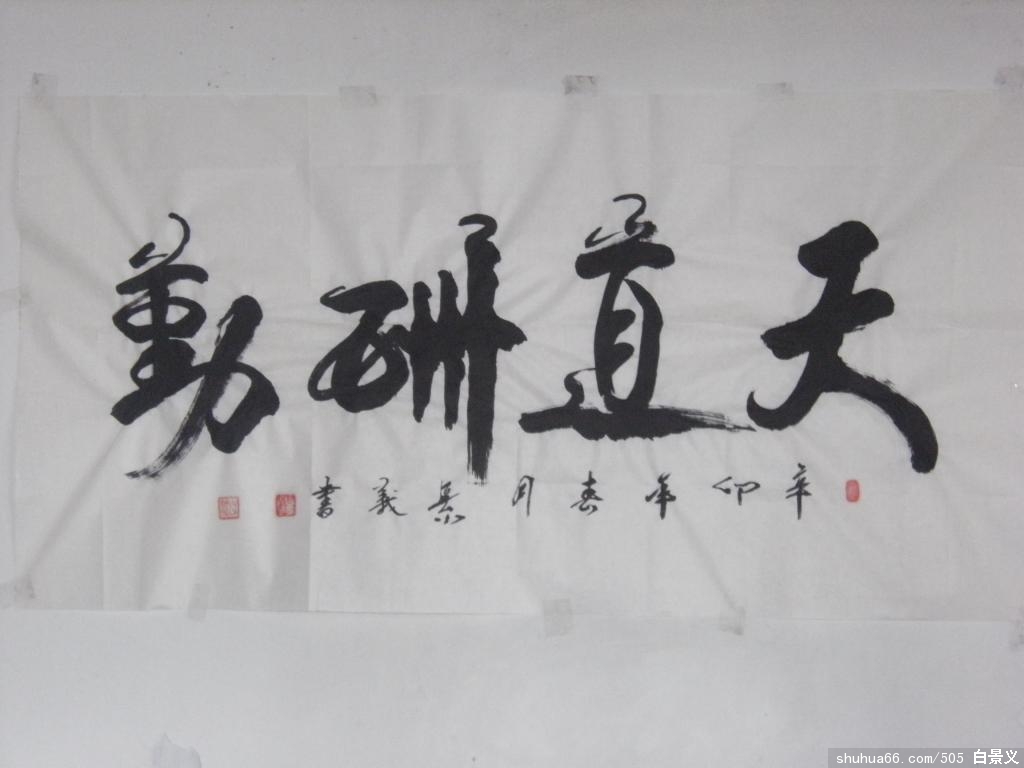 天道酬勤
辛卯年春月景義書
shuhua66.com/505 白景义